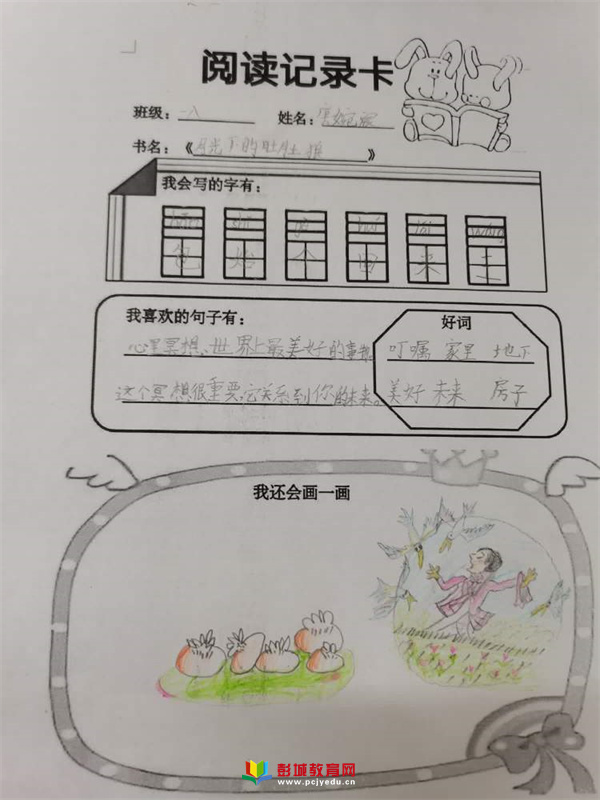 阅读记录卡
班级: 一八 姓名:
书名: 《月光下的肚肚狼》
我会写的字有:
包 个 电 来 王
我喜欢的句子有:
好词
心里冥想,世界上最美好的事
叮嘱 家里 地下
这个冥想很重要,它关系到你的未来。
美好 未来 房子
我还会画一画
彭城教育网
www.pcjyedu.cn